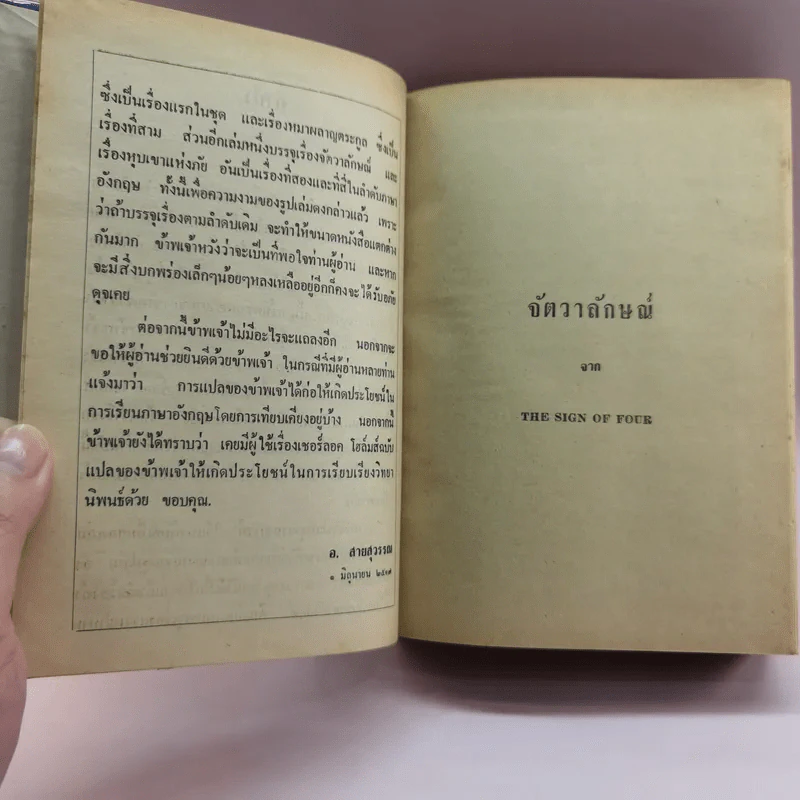 ซึ่งเป็นเรื่องแรกในชุด และเรื่องหมาผลาญตระกูล ซึ่งเป็น
เรื่องที่สาม ส่วนอีกเล่มหนึ่งบรรจุเรื่องจัตวาลักษณ์ และ
เรื่องหุบเขาแห่งภัย อันเป็นเรื่องที่สองและที่สี่ในลำดับภาษา
อังกฤษ ทั้งนี้เพื่อความงามของรูปเล่มดังกล่าวแล้ว เพราะ
ว่าถ้าบรรจุเรื่องตามลำดับเดิม จะทำให้ขนาดหนังสือแตกต่าง
กันมาก ข้าพเจ้าหวังว่าจะเป็นที่พอใจท่านผู้อ่าน และหาก
จะมีสิ่งบกพร่องเล็กๆน้อยๆหลงเหลืออยู่อีกก็คงจะได้รับอภัย
ดุจเคย
ต่อจากนี้ข้าพเจ้าไม่มีอะไรจะแถลงอีก นอกจากจะ
ขอให้ผู้อ่านช่วยยินดีด้วยข้าพเจ้า ในกรณีที่มีผู้อ่านหลายท่าน
แจ้งมาว่า การแปลของข้าพเจ้าได้ก่อให้เกิดประโยชน์ใน
การเรียนภาษาอังกฤษโดยการเทียบเคียงอยู่บ้าง นอกจากนี้
ข้าพเจ้ายังได้ทราบว่า เคยมีผู้ใช้เรื่องเชอร์ลอค โฮล์มส์ฉบับ
แปลของข้าพเจ้าให้เกิดประโยชน์ในการเรียบเรียงวิทยา
นิพนธ์ด้วย ขอบคุณ.
อ. สายสุวรรณ
๑ มิถุนายน
จัตวาลักษณ์
จาก
THE SIGN OF FOUR